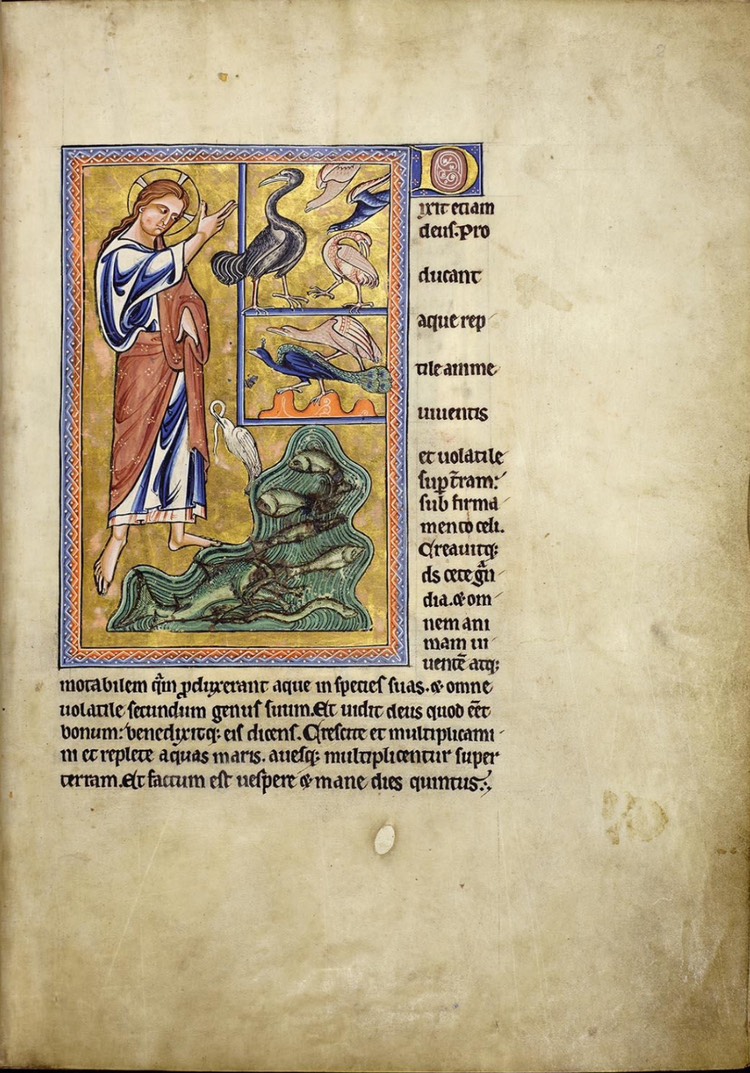 D
ixit etiam
deus. Pro
ducant
aque rep
tile anime
uiuentis
et uolatile
sup̄ t̄ram:
sub firma
mento celi.
Creauitq;
ds cete gn̄
dia. & om
nem ani
mam ui
uentē atq;
motabilem q̄m ꝓduxerant aque in species suas. & omne
uolatile secundum genus suum. Et uidit deus quod eēt
bonum: benedixitq; eis dicens. Crescite et multiplicami
ni et replete aquas maris. auesq; multiplicentur super
terram. Et factum est uespere & mane dies quintus.